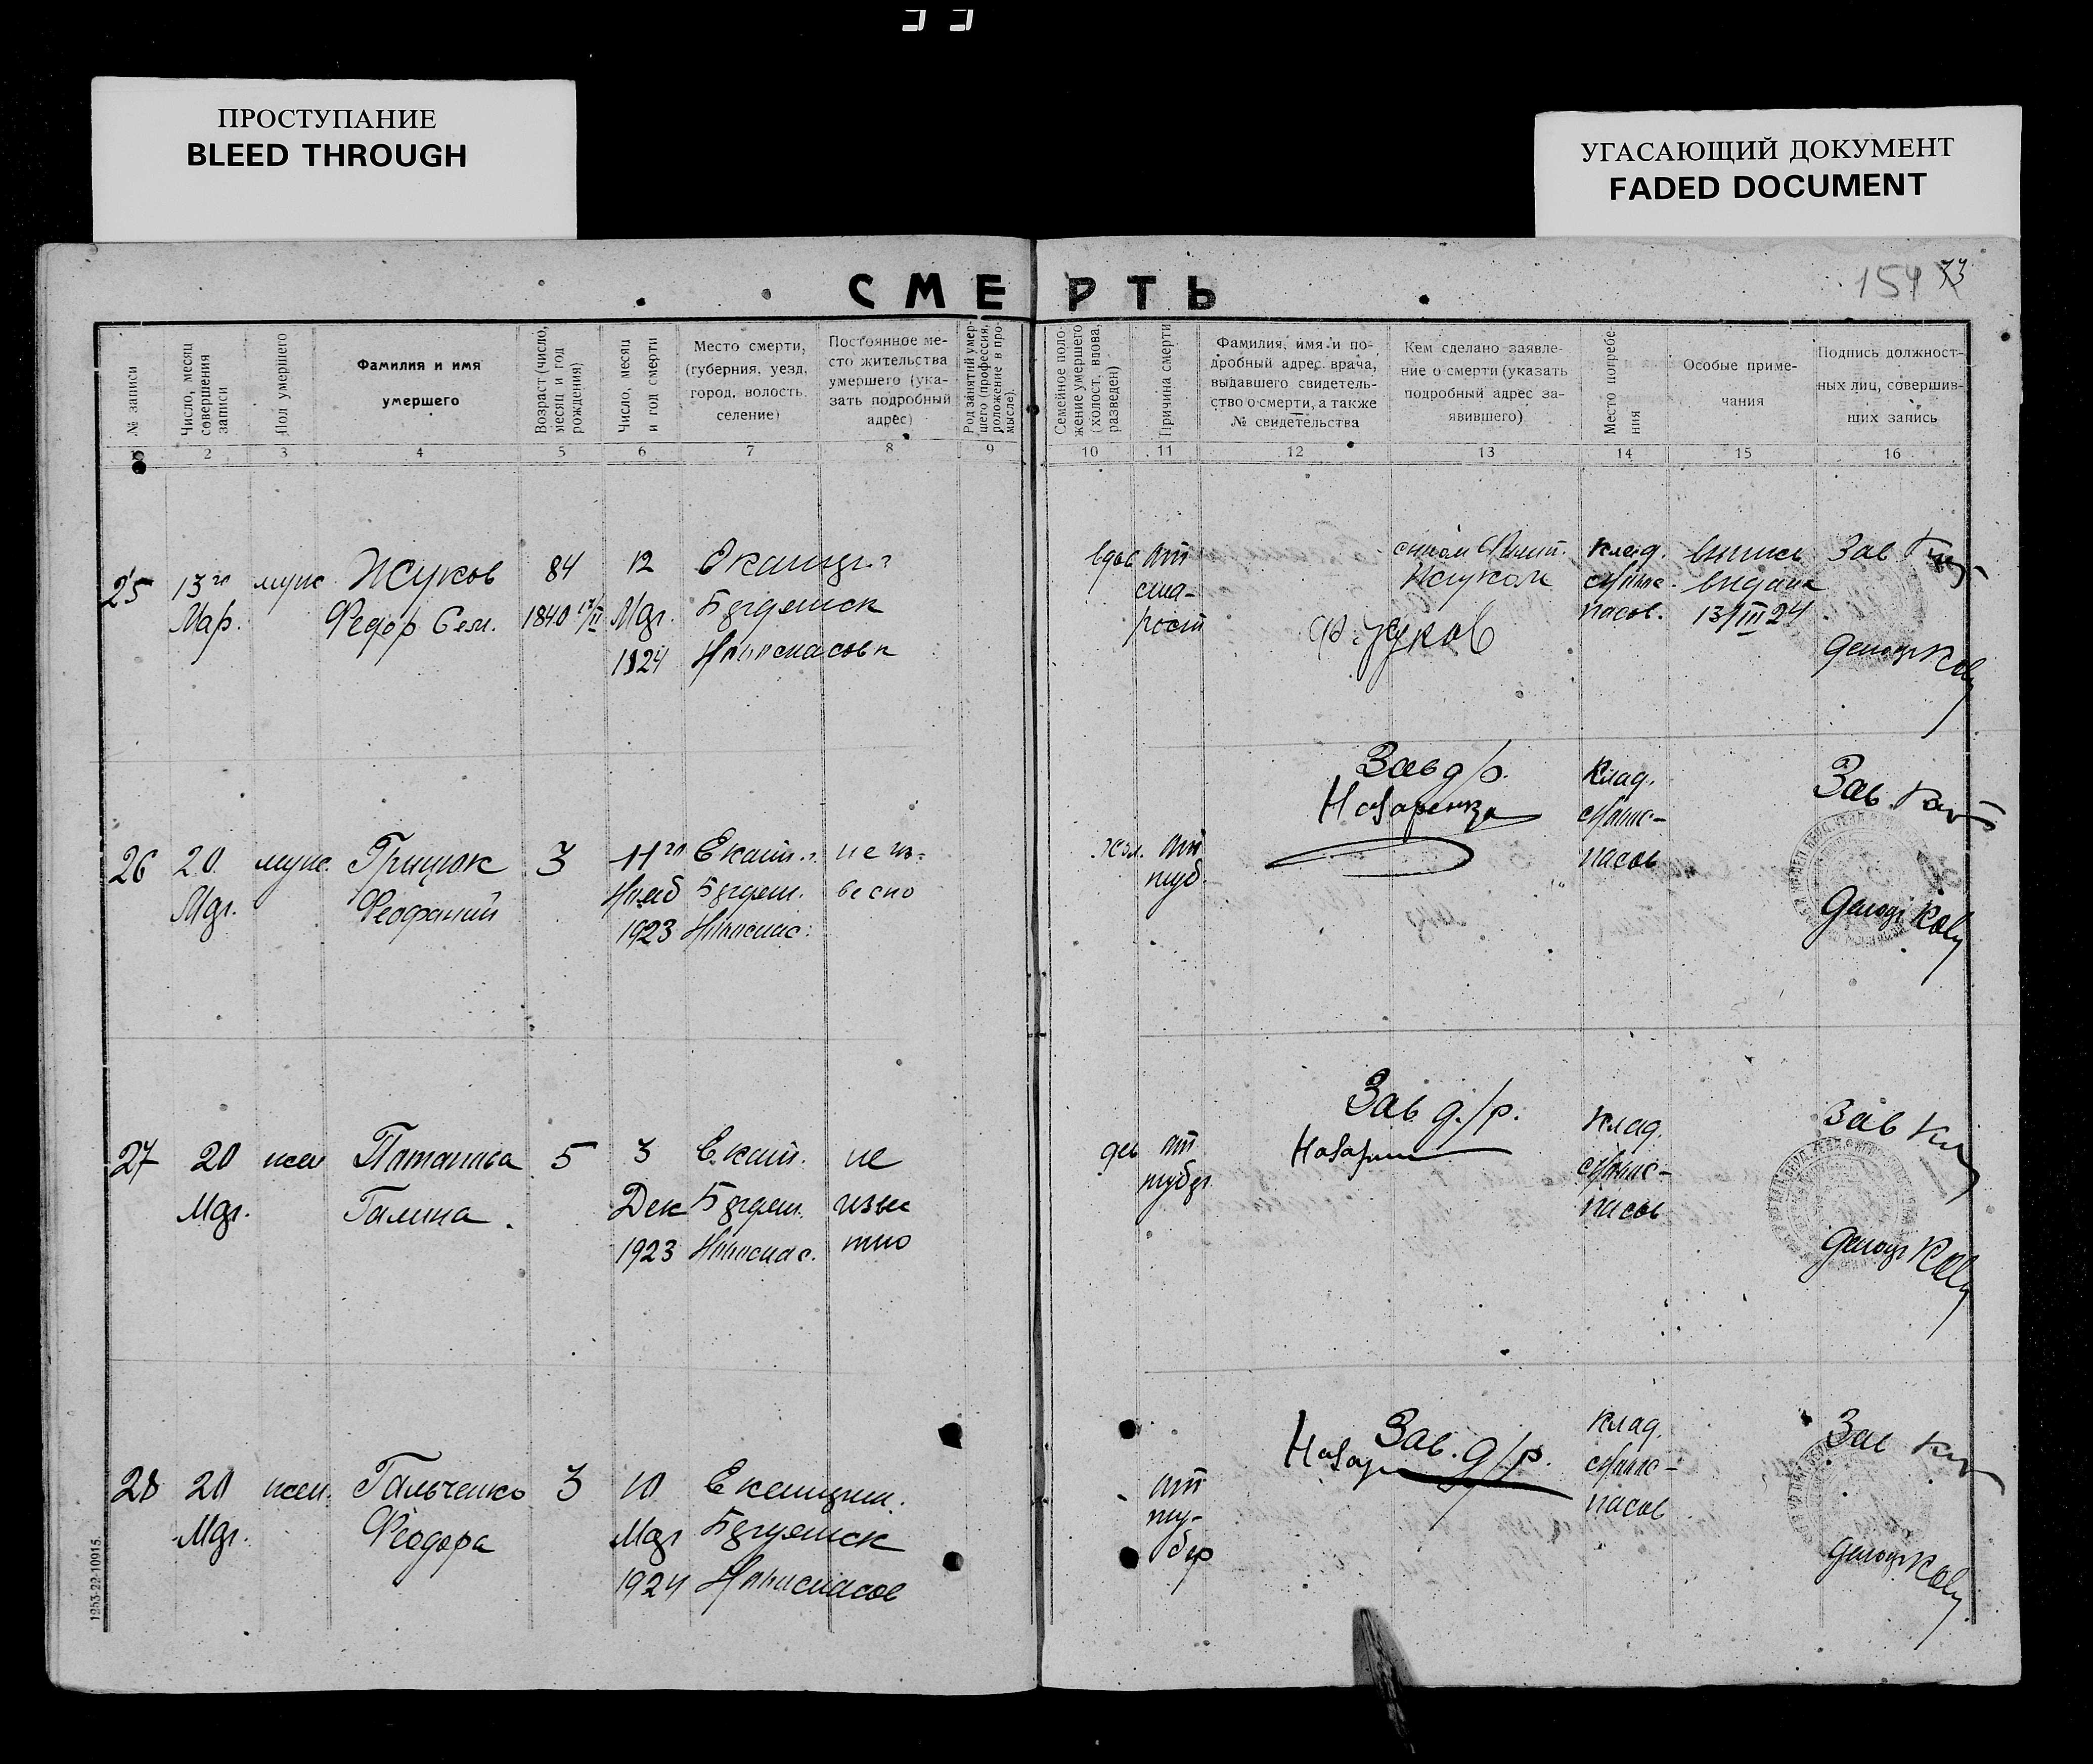 ПРОСТУПАНИЕ
BLEED THROUGH
УГАСАЮЩИЙ ДОКУМЕНТ
FADED DOCUMENT
154 73
СМЕРТЬ
№ записи
Число, месяц
совершения
записи
Пол умершего
Фамилия и имя
умершего
Возраст (число,
месяц и год
рождения)
Число, месяц
и год смерти
Место смерти,
(губерния, уезд,
город, волость,
селение)
Постоянное ме-
сто жительства
умершего (ука-
зать подробный
адрес)
Род занятий умер-
шего (профессия,
положение в про-
мысле).
Семейное поло-
жение умершего
(холост, вдова,
разведен)
Причина смерти
Фамилия, имя и по-
дробный адрес врача,
выдавшего свидетель-
ство о смерти, а также
№ свидетельства
Кем сделано заявле-
ние о смерти (указать
подробный адрес за-
явившего)
Место погребе-
ния
Особые приме-
чания
Подпись должност-
ных лиц, совершив-
ших запись
1 2 3 4 5 6 7 8 9 10 11 12 13 14 15 16
25
13го
Мар.
муж
Жуков
Федор Сем.
84
1840
12
Мар.
1924
Бердянск
Новоспасовк
вдов
от
ста-
рост
сыном
Жуком
Ф. Жуков
клад.
Ново-
пасов.
выпись
выдана
13/III 24
Зав
26
20
Мар.
муж.
Грицюк
Феофаний
3
11го
Нояб
1923
Екат.
Бердян.
Новоспас.
не из-
весно
хол.
от
туб.
Зав д/р.
Назаренко
Клад.
Ново-
пасов
Зав
27
20
Мар.
жен
Потапова
Галина
5
3
Дек
1923
Екат.
Бердян.
Новоспас.
не
извес
тно
дев
от
тубер
Зав д./р.
клад.
Ново-
пасов
Зав
28
20
Мар.
жен.
Гальченко
Феодора
3
10
Мар
1924
Бердянск
Новоспасов
от
ту-
бер
Зав. д/р.
клад.
Ново-
пасов
Зав
1253-22-10915.